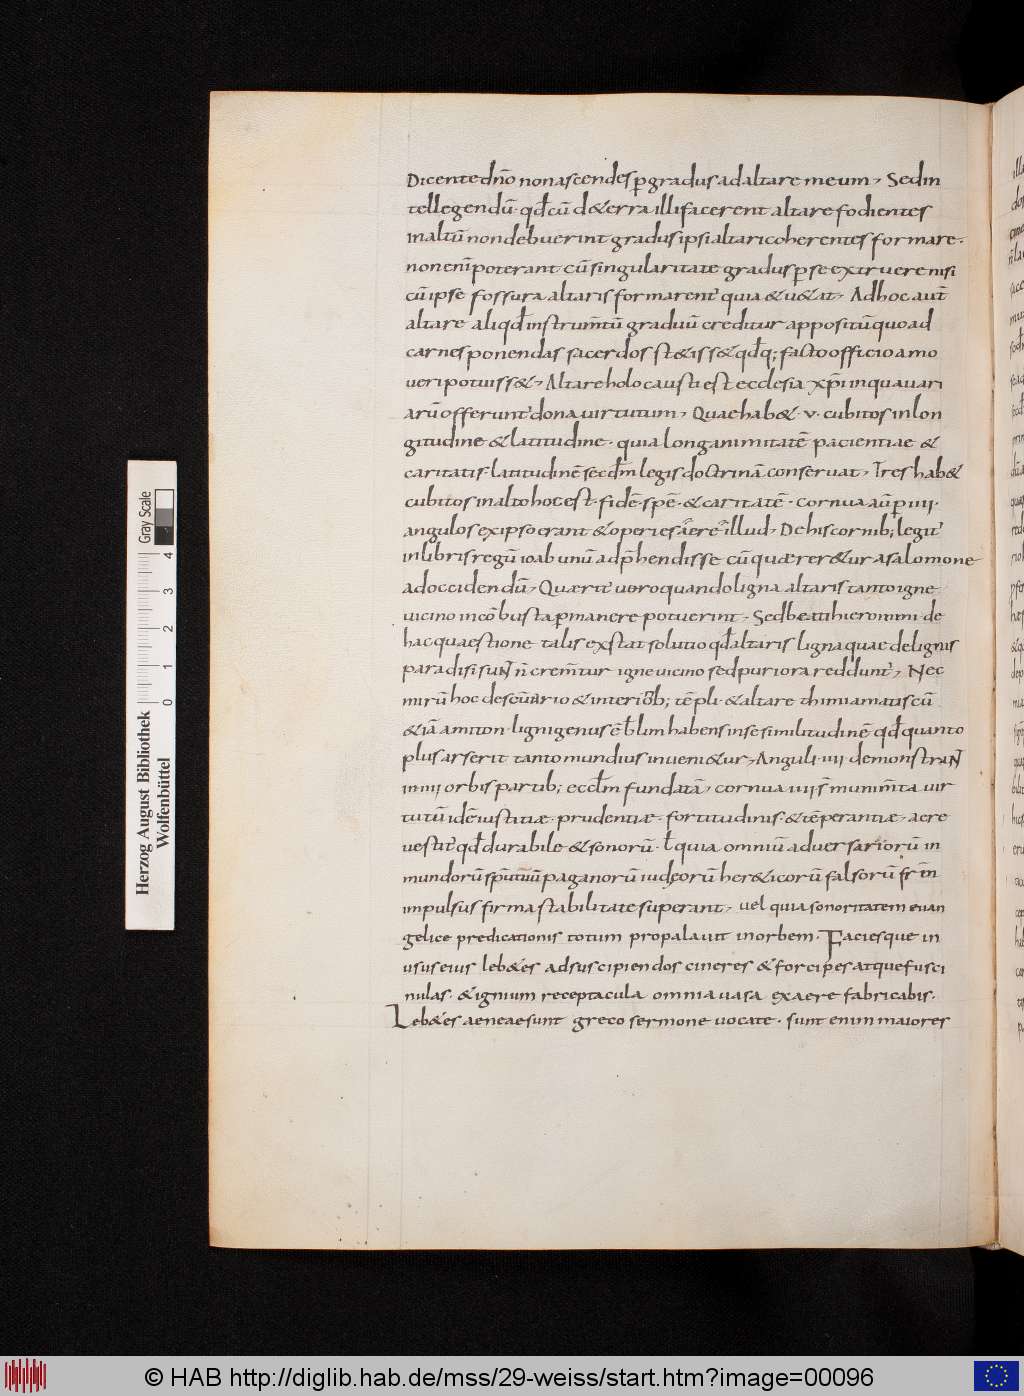 Dicente dn̄o non ascendes ꝑ gradus ad altare meum, Sed in
tellegendū· qđ cū d& erra illi facerent altare fodientes
in altū non debuerint gradus ipsi altari coherentes formare·
non enī poterant cū singularitate gradus ꝑ se extruere nisi
cū ipse fossura altaris formarent quia & u&at, Ad hoc aut̄
altare aliqđ instrum̄tū graduū creditur appositū quo ad
carnes ponendas sacerdos st&iss& qđq; facto officio amo
ueri potuiss&, Altare holocausti est ecclesia xp̄i in qua uari
arū offerunt dona uirtutum, Quae hab& ·v· cubitos in lon
gitudine & latitudine· quia longanimitatē pacientiae &
caritatis· latitudinē secđm legis doctrinā conseruat, Tres hab&
cubitos in alto hoc est· fidē· spē· & caritatē· cornua aū ꝑ iiii·
angulos ex ipso erant & operies aere illud, De his cornib; legit
in libris regū ioab unū adp̄hendisse cū quærer&ur a salomone
ad occidendū, Quærit uero quando ligna altaris tanto igne
uicino incōbusta ꝑmanere potuerint, Sed beati hieronimi de
hac quaestione talis exstat solutio qđ altaris ligna quae de lignis
paradisi suNt n̄ crem̄tur igne uicino sed puriora reddunt, Nec
mirū hoc de scu̅ario & interiorib; tēpli & altare thimiamatis cū
& iā amiton· ligni genus ē ƀlim habens in se similitudinē qđ quanto
plus arserit tanto mundius inueni&ur, Anguli iiii demonstraNt
in iiii orbis partib; eccłm fundatā, cornua iiii s̄ munim̄ta uir
tutū idē iustitiæ· prudentiæ· fortitudinis· & tēperantiæ, aere
uestit qđ durabile & sonorū· ł quia omniū aduersariorū in
mundorū spirituū paganorū iudęorū her&icorū falsorū fr̄ in
impulsus firma stabilitate superant, uel quia sonoritatem euan
gelice predicationis totum propalauit in orbem· Faciesque in
usus eius leb&es ad suscipiendos cineres & forcipes atque fusci
nulas· & ignium receptacula omnia uasa ex aere fabricabis·
Leb&es aeneae sunt greco sermone uocate· sunt enim maiores
Gray Scale
4 3 2 1 0
Herzog August Bibliothek
Wolfenbüttel
© HAB http://diglib.hab.de/mss/29-weiss/start.htm?image=00096